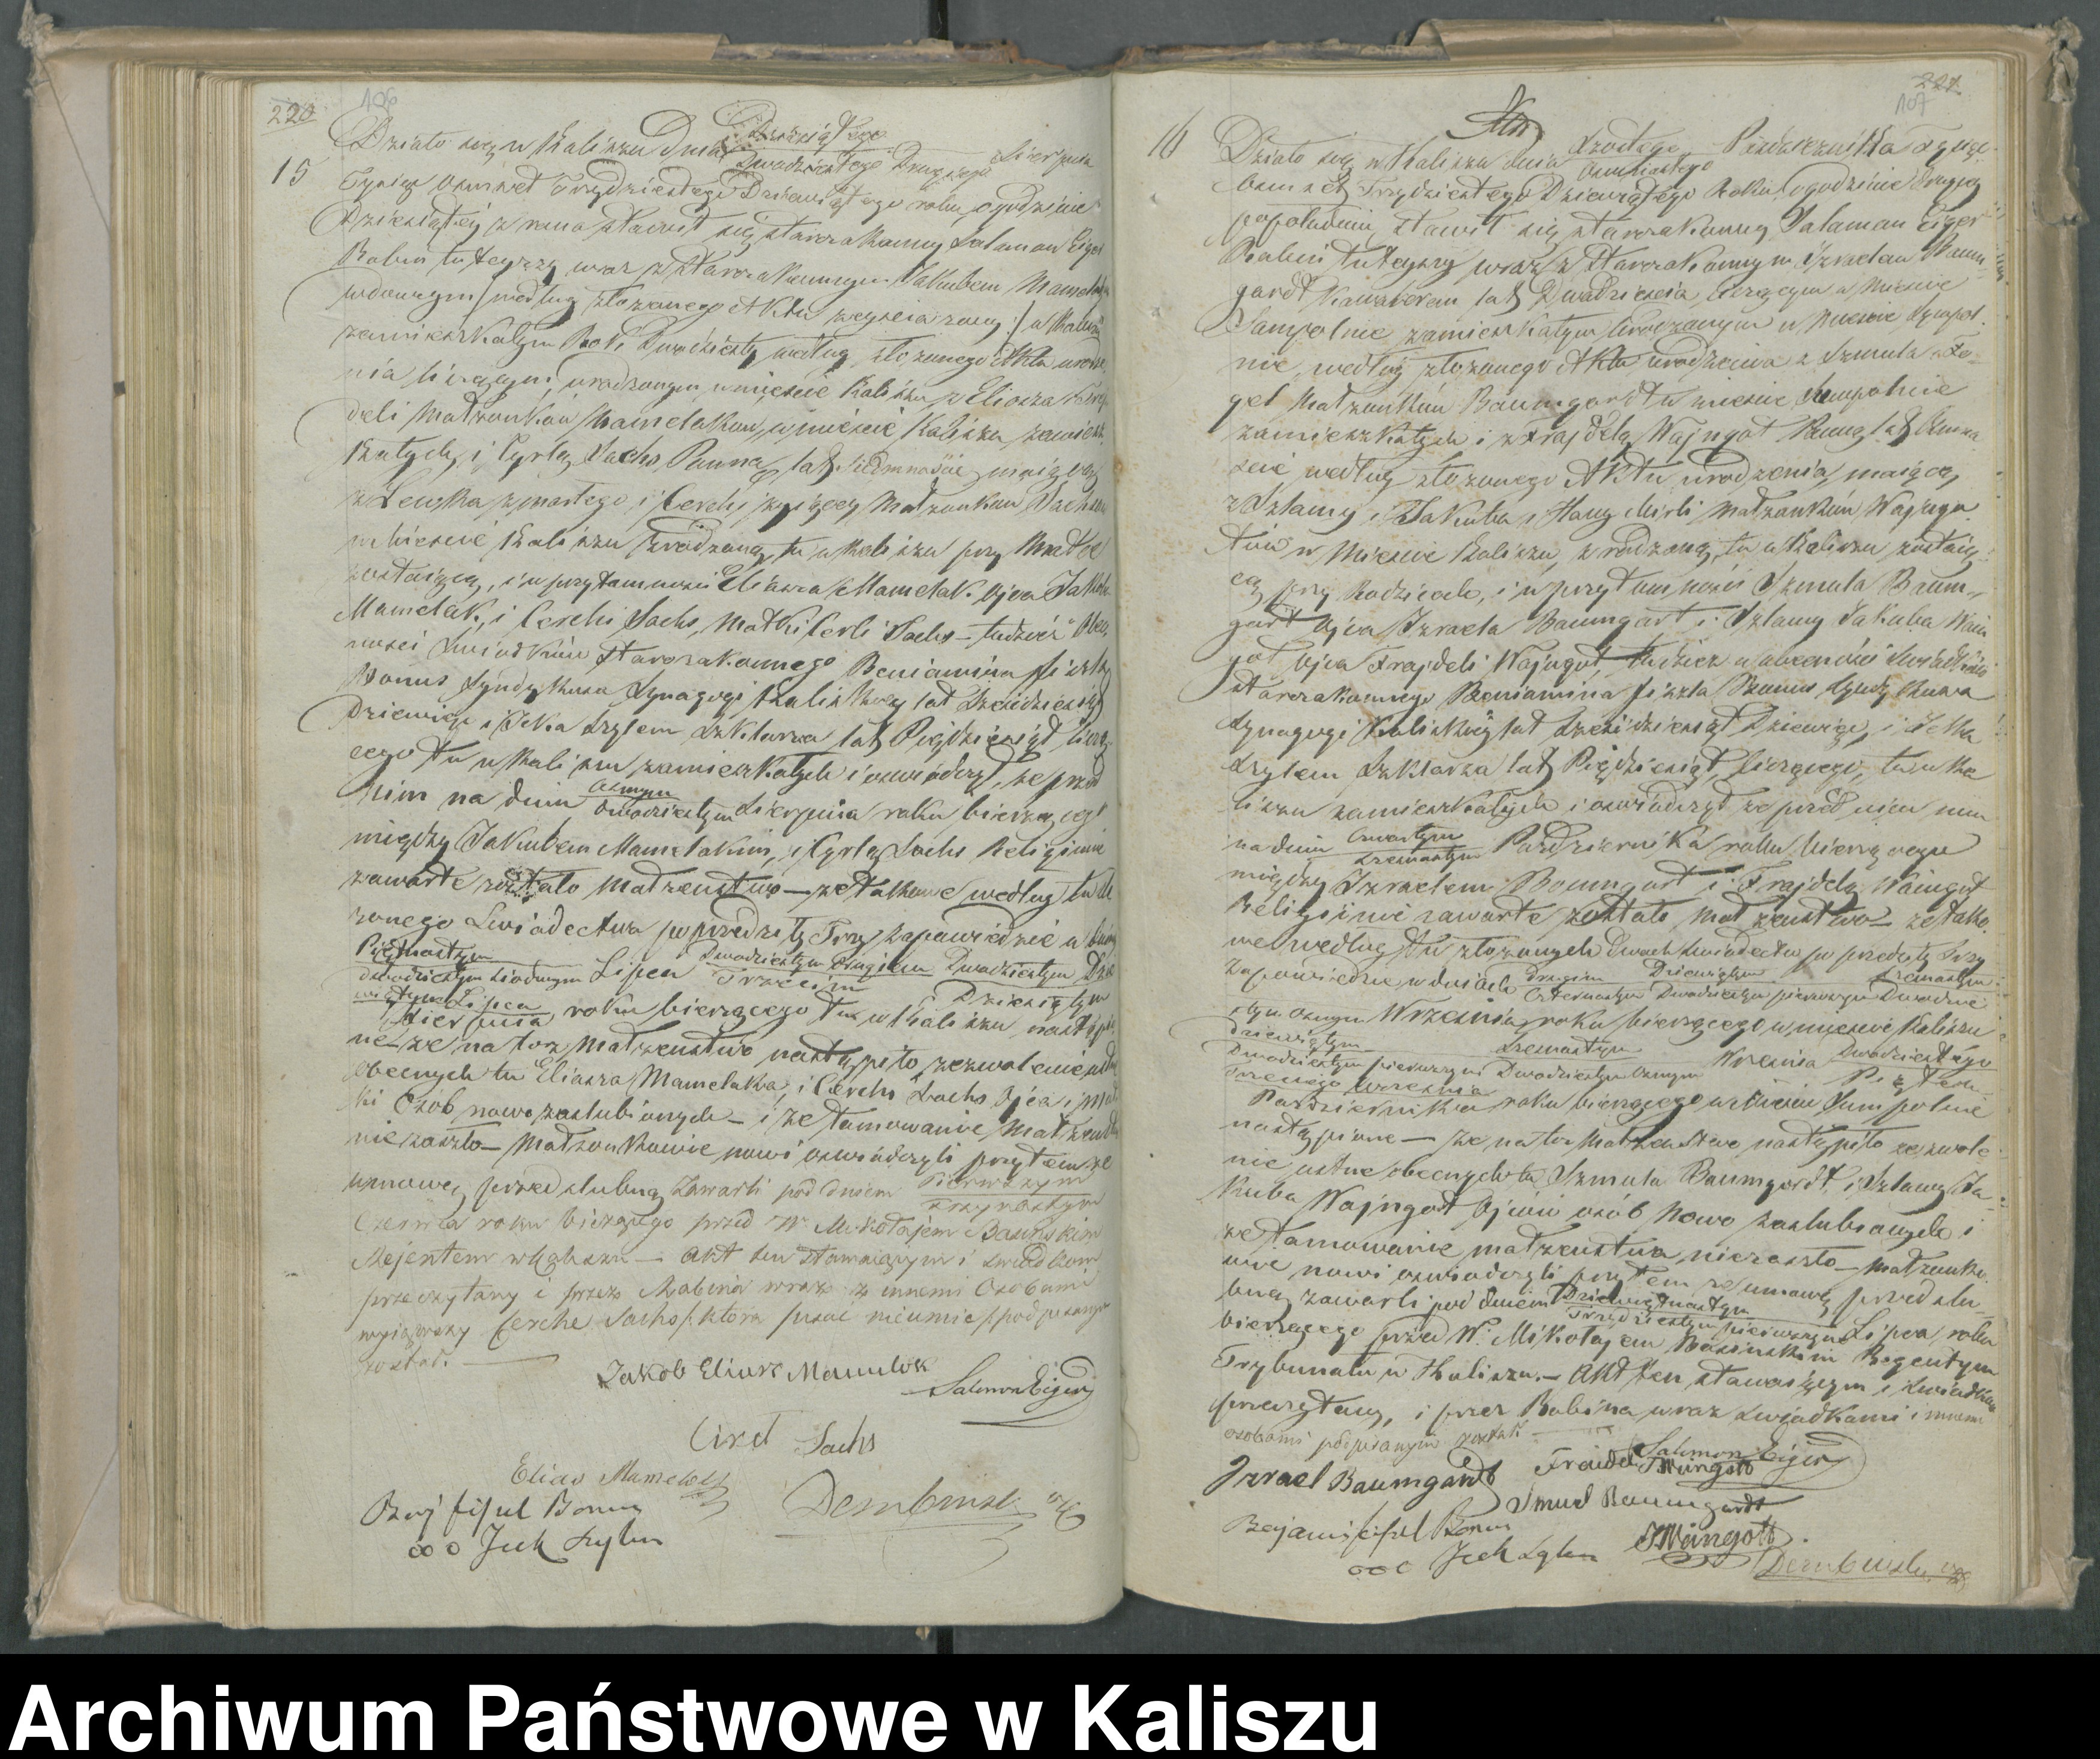 220 106
15
Działo się w Kaliszu Dnia Dziesiątego Sierpnia
Dwudziestego Drugiego
Tysiąc Osmset Trzydziestego Dziewiątego roku, o godzinie
Dziesiątéj z rana stawił się starozakonny Salamon Eiger
Rabin tuteyszy wraz z Starozakonnym Jakubem Mamelak
wdowcem /: według złożonego Aktu zeyścia żony :/ w Kaliszu
zamieszkałym Rok Dwudziesty według złożonego Aktu urodze
nia liczącym, urodzonym w mieście Kaliszu z Eliasza i
deli Małżonków Mamelaków, w mieście Kaliszu zamiesz
kałych, i Cyrlą Sachs Panną, lat Siedmnaście mającą
z Lewka zmarłego i Cerchy żyjącey Małżonków Sachsów
w Mieście Kaliszu zrodzoną, tu w Kaliszu przy Matce
zostaiącą, i w przytomności Eliasza Mamelak Ojca Jakuba
Mamelak, i Cerchi Sachs, Matki Cerli Sachs – tudzież Obec
ności Świadków starozakonnego Beniamina Fiszla
Bonus Syndykusa Synagogi Kaliskiey lat Sześćdziesiąt
Dziewięć i Icka Szylem Szklarza lat Pięćdziesiąt licz
cego tu w Kaliszu zamieszkałych i oswiadczył, że przed
nim na dniu Osmym Sierpnia roku bieżącego
Dwudziestym
między Jakubem Mamelakiem, i Cyrlą Sachs Religijnie
zawarte zostało Małżeństwo – że takowe według tu zło
żonego Świadectwa poprzedziły Trzy zapowiedzie w dniu
Piętnastym Lipca Dwudziestym Drugim Dwudziestym Dzie
dwudziestym siódmym Trzecim Dziesiątym
wiątym Lipca
Sierpnia roku bieżącego tu w Kaliszu nastąpio
ne – że na toż Małżeństwo nastąpiło zezwolenie ustne
obecnych tu Eliasza Mamelaka, i Cerchi Sachs Ojca i mat
ki Osob nowo zaslubionych – i że tamowanie Małżeństwa
nie zaszło – Małżonkowie nowi oswiadczyli przytem że
umowę przed slubną zawarli pod dniem Pierwszym
Trzynastym
Czerwca roku bieżącego przed W. Mikołajem Basińskim
Rejentem w Kaliszu – Akt ten stawaiącym i swiadkom
przeczytany i przez Rabina wraz z innemi Osobami
wyiąwszy Cerche Sachs /: która pisać nieumie :/ podpisanym
został. –
Jakob Eliasz Mamelok
Salomon Eiger
Cirel Sachs
Elias Mamelok
Benj fischel Bonus
Dembinski
Jcek Szylem
227 107
16 Akt
Działo się w Kaliszu dnia Szóstego Października Tysiąc
Osmnastego
Osmset Trzydziestego Dziewiątego Roku, o godzinie drugiej
popołudniu, stawił się starozakonny Salaman Eiger
Rabin tuteyszy wraz z Starozakonnym Izraelem Baum-
gardt Kawalerem lat Dwadzieścia liczącym w Mieście
Sampolnie zamieszkałym urodzonym w Mieście Sępol
nie, według złożonego Akta urodzenia z Szmula i Fe-
gel Małżonków Baumgardt w mieście Sempolnie
zamieszkałych i z Frajdelą Wajngot Panną lat
ście według złożonego Aktu urodzenia, maiącą,
z Szlamy Jakuba i Hany Mirli Małżonków Wajngo
tów w Mieście Kaliszu, zrodzoną, tu w Kaliszu zostaią
cą przy Rodzicach, i w przytomności Szmula Baum-
gart Ojca Izraela Baumgart i Szlamy Jakuba Wain
got, Ojca Frajdeli Wajngot, tudzież w obecności świadków
starozakonnego Beniamina Fiszla Bonus, Syndykusa
Synagogi Kaliskiey lat Sześćdziesiąt Dziewięć, i Icka
Szylem Szklarza lat Pięćdziesiąt, liczącego, tu w Ka
liszu zamieszkałych i oswiadczył że przed nim
na dniu Czwartym Października roku bieżącego
Szesnastym
między Izraelem Baumgart i Frajdelą Waingot
Religijnie zawarte zostało małżeństwo – że tako
we według tu złożonych Dwoch Swiadectw poprzedziły Trzy
Zapowiedzie w dniach Drugim Dziewiątym Szesnastym
Czternastym Dwudziestym pierwszym Dwudzie
stym Osmym Września roku bieżącego w mieście Kaliszu
dziewiątym Szesnastym Września Dwudziestego
Dwudziestym pierwszym Dwudziestym Osmym Piątem
Trzeciego Września
Października roku bieżącego w Mieście Sumpolnie
nastąpione – że na toż Małżeństwo nastąpiło zezwole
nie ustne obecnych tu Szmula Baumgardt, i Szlamy Ja-
kuba Wajngot Ojców osób nowo zaslubionych i
że tamowanie małżeństwa niezaszło – Małżonko
wie nowi oswiadczyli przytem że umowę przed slu-
bną zawarli pod dniem Dziewiętnastym Lipca roku
Trzydziestym pierwszym
bieżącego przed W. Mikołajem Basińskim Regentym
Trybunału w Kaliszu. – Akt ten stawaiącym i swiadkom
przeczytany, i przez Rabina wraz swiadkami i innemi
osobami podpisanym został –
Salomon Eiger
Izrael Baumgardt Fraidel Waingott
Smuel Baumgardt
Benjami fischel Bonus
SWaingott
Jcek Szylem
Dembinski
Archiwum Państwowe w Kaliszu